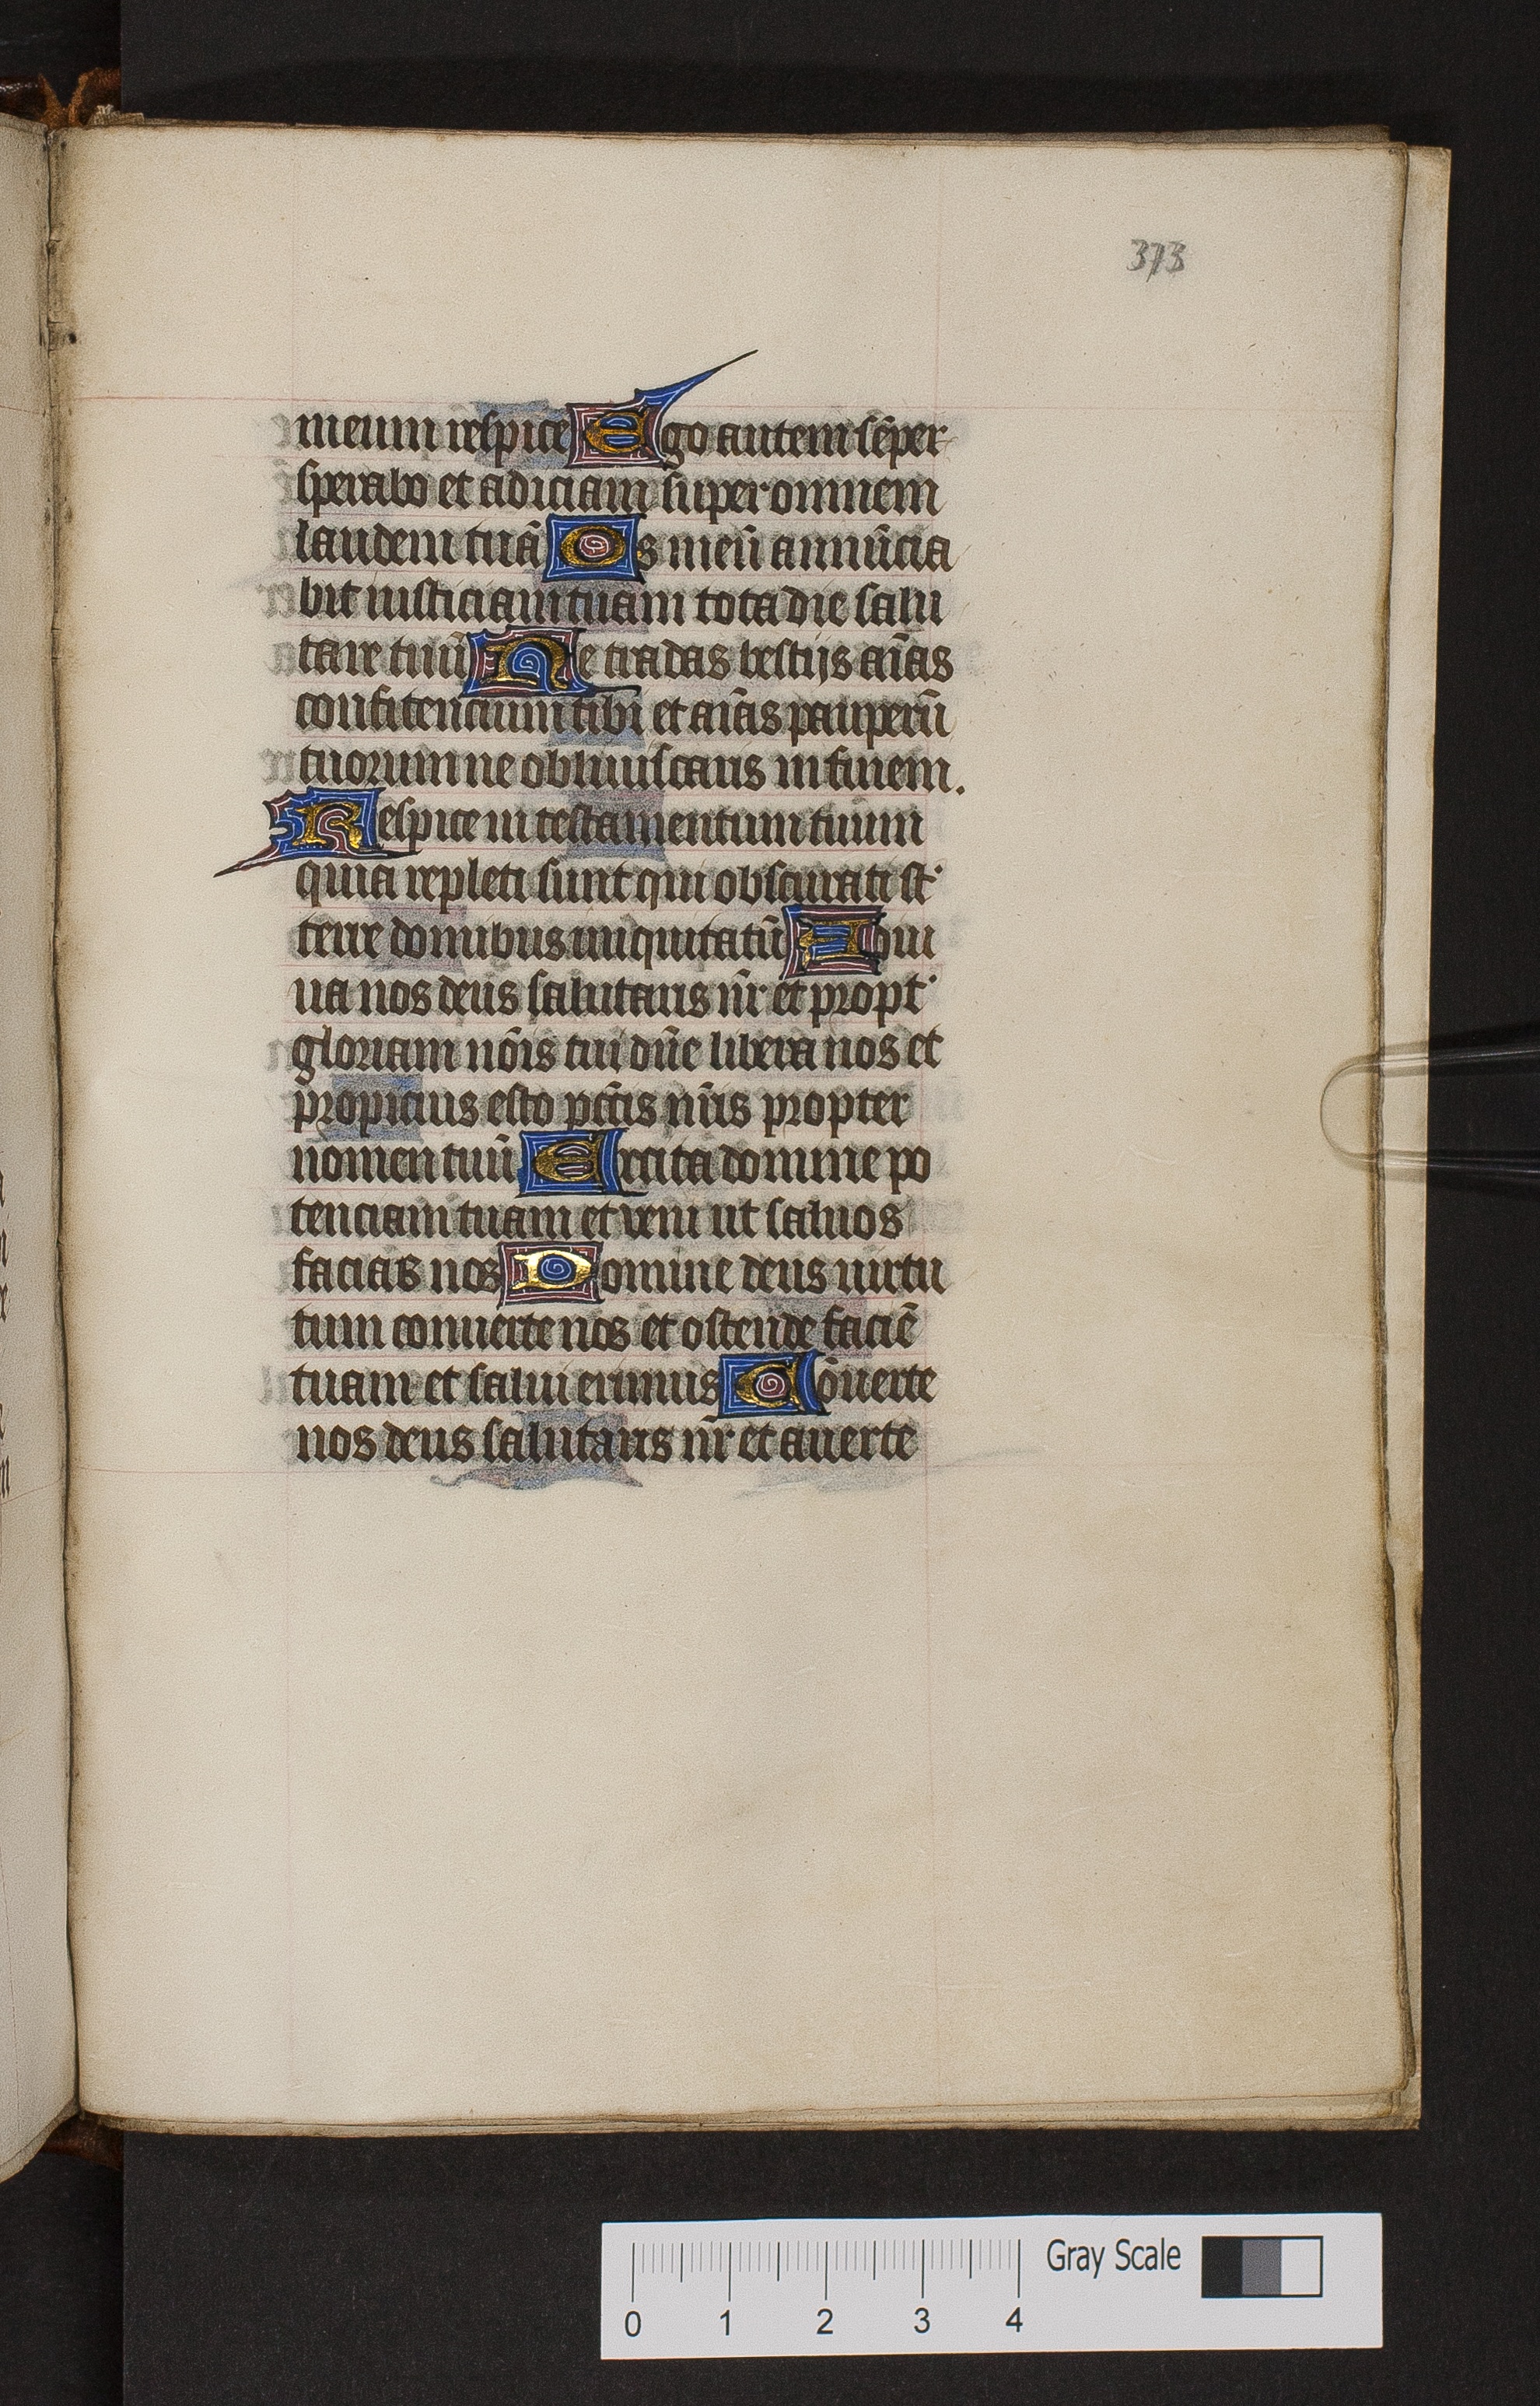 373
meum respice Ego autem sēper
sperabo et adiciam super omnem
laudem tuā Os meū annūcia
bit iusticiam tuam tota die salu
tare tuū Ne tradas bestijs aīas
confitencium tibi et aīas pauperū
tuorum ne obliuiscaris in finem.
Respice in testamentum tuum
quia repleti sunt qui obscurati st̄
terre domibus iniquitatū Adiu
ua nos deus salutaris nr̄ et propt̄
gloriam nōis tui dn̄e libera nos et
propicius esto pctīs nr̄is propter
nomen tuū Excita domine po
tenciam tuam et veni ut saluos
facias nos Domine deus uirtu
tum conuerte nos et ostende faciē
tuam et salui erimus Cōuerte
nos deus salutaris nr̄ et auerte
Gray Scale
0 1 2 3 4